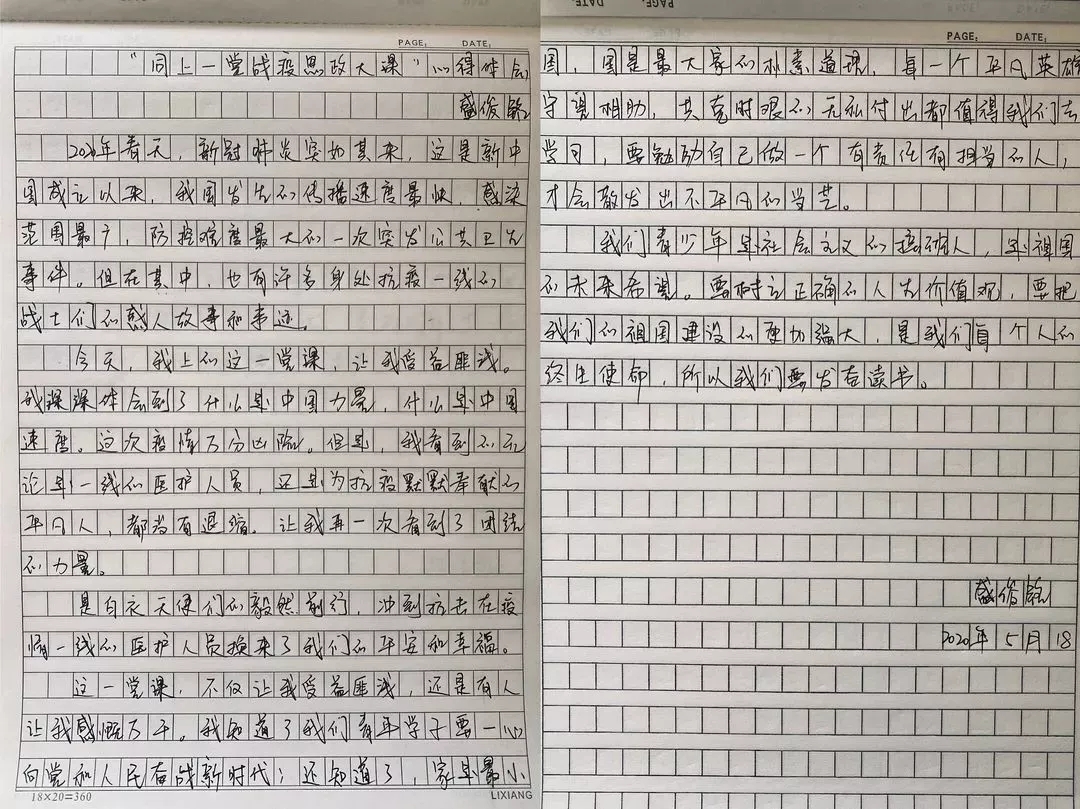 PAGE: DATE:
“同上一堂战疫思政大课”心得体会
盛俊
2020年春天，新冠肺炎突如其来，这是新中
国成立以来，我国发生的传播速度最快，感染
范围最广，防控难度最大的一次突发公共卫生
事件。但在其中，也有许多身处抗疫一线的
战士们的感人故事和事迹。
今天，我上的这一堂课，让我受益匪浅。
我深深体会到了什么是中国力量，什么是中国
速度。这次疫情万分凶险。但是，我看到的无
论是一线的医护人员，还是为抗疫默默奉献的
平凡人，都当有退缩。让我再一次看到了团结
的力量。
是白衣天使们的毅然前行，冲到抗击在疫
情一线的医护人员换来了我们的平安和幸福。
这一堂课，不仅让我受益匪浅，还是有人
让我感慨万千。我知道了我们青年学子要一心
向党和人民奋战新时代；还知道了，家是最小
18×20=360 LIXIANG
PAGE: DATE:
国，国是最大家的朴素道理，每一个平凡英雄
守望相助，共克时艰的无私付出都值得我们去
学习，要勉励自己做一个有责任有担当的人，
才会散发出不平凡的光芒。
我们青少年是社会主义的接班人，是祖国
的未来希望。要树立正确的人生价值观，要把
我们的祖国建设的更加强大，是我们每个人的
终生使命，所以我们要发奋读书。
盛俊
2020年5月18